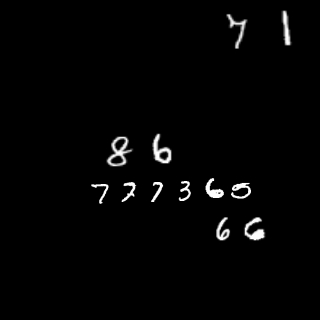 71
86
777365
66